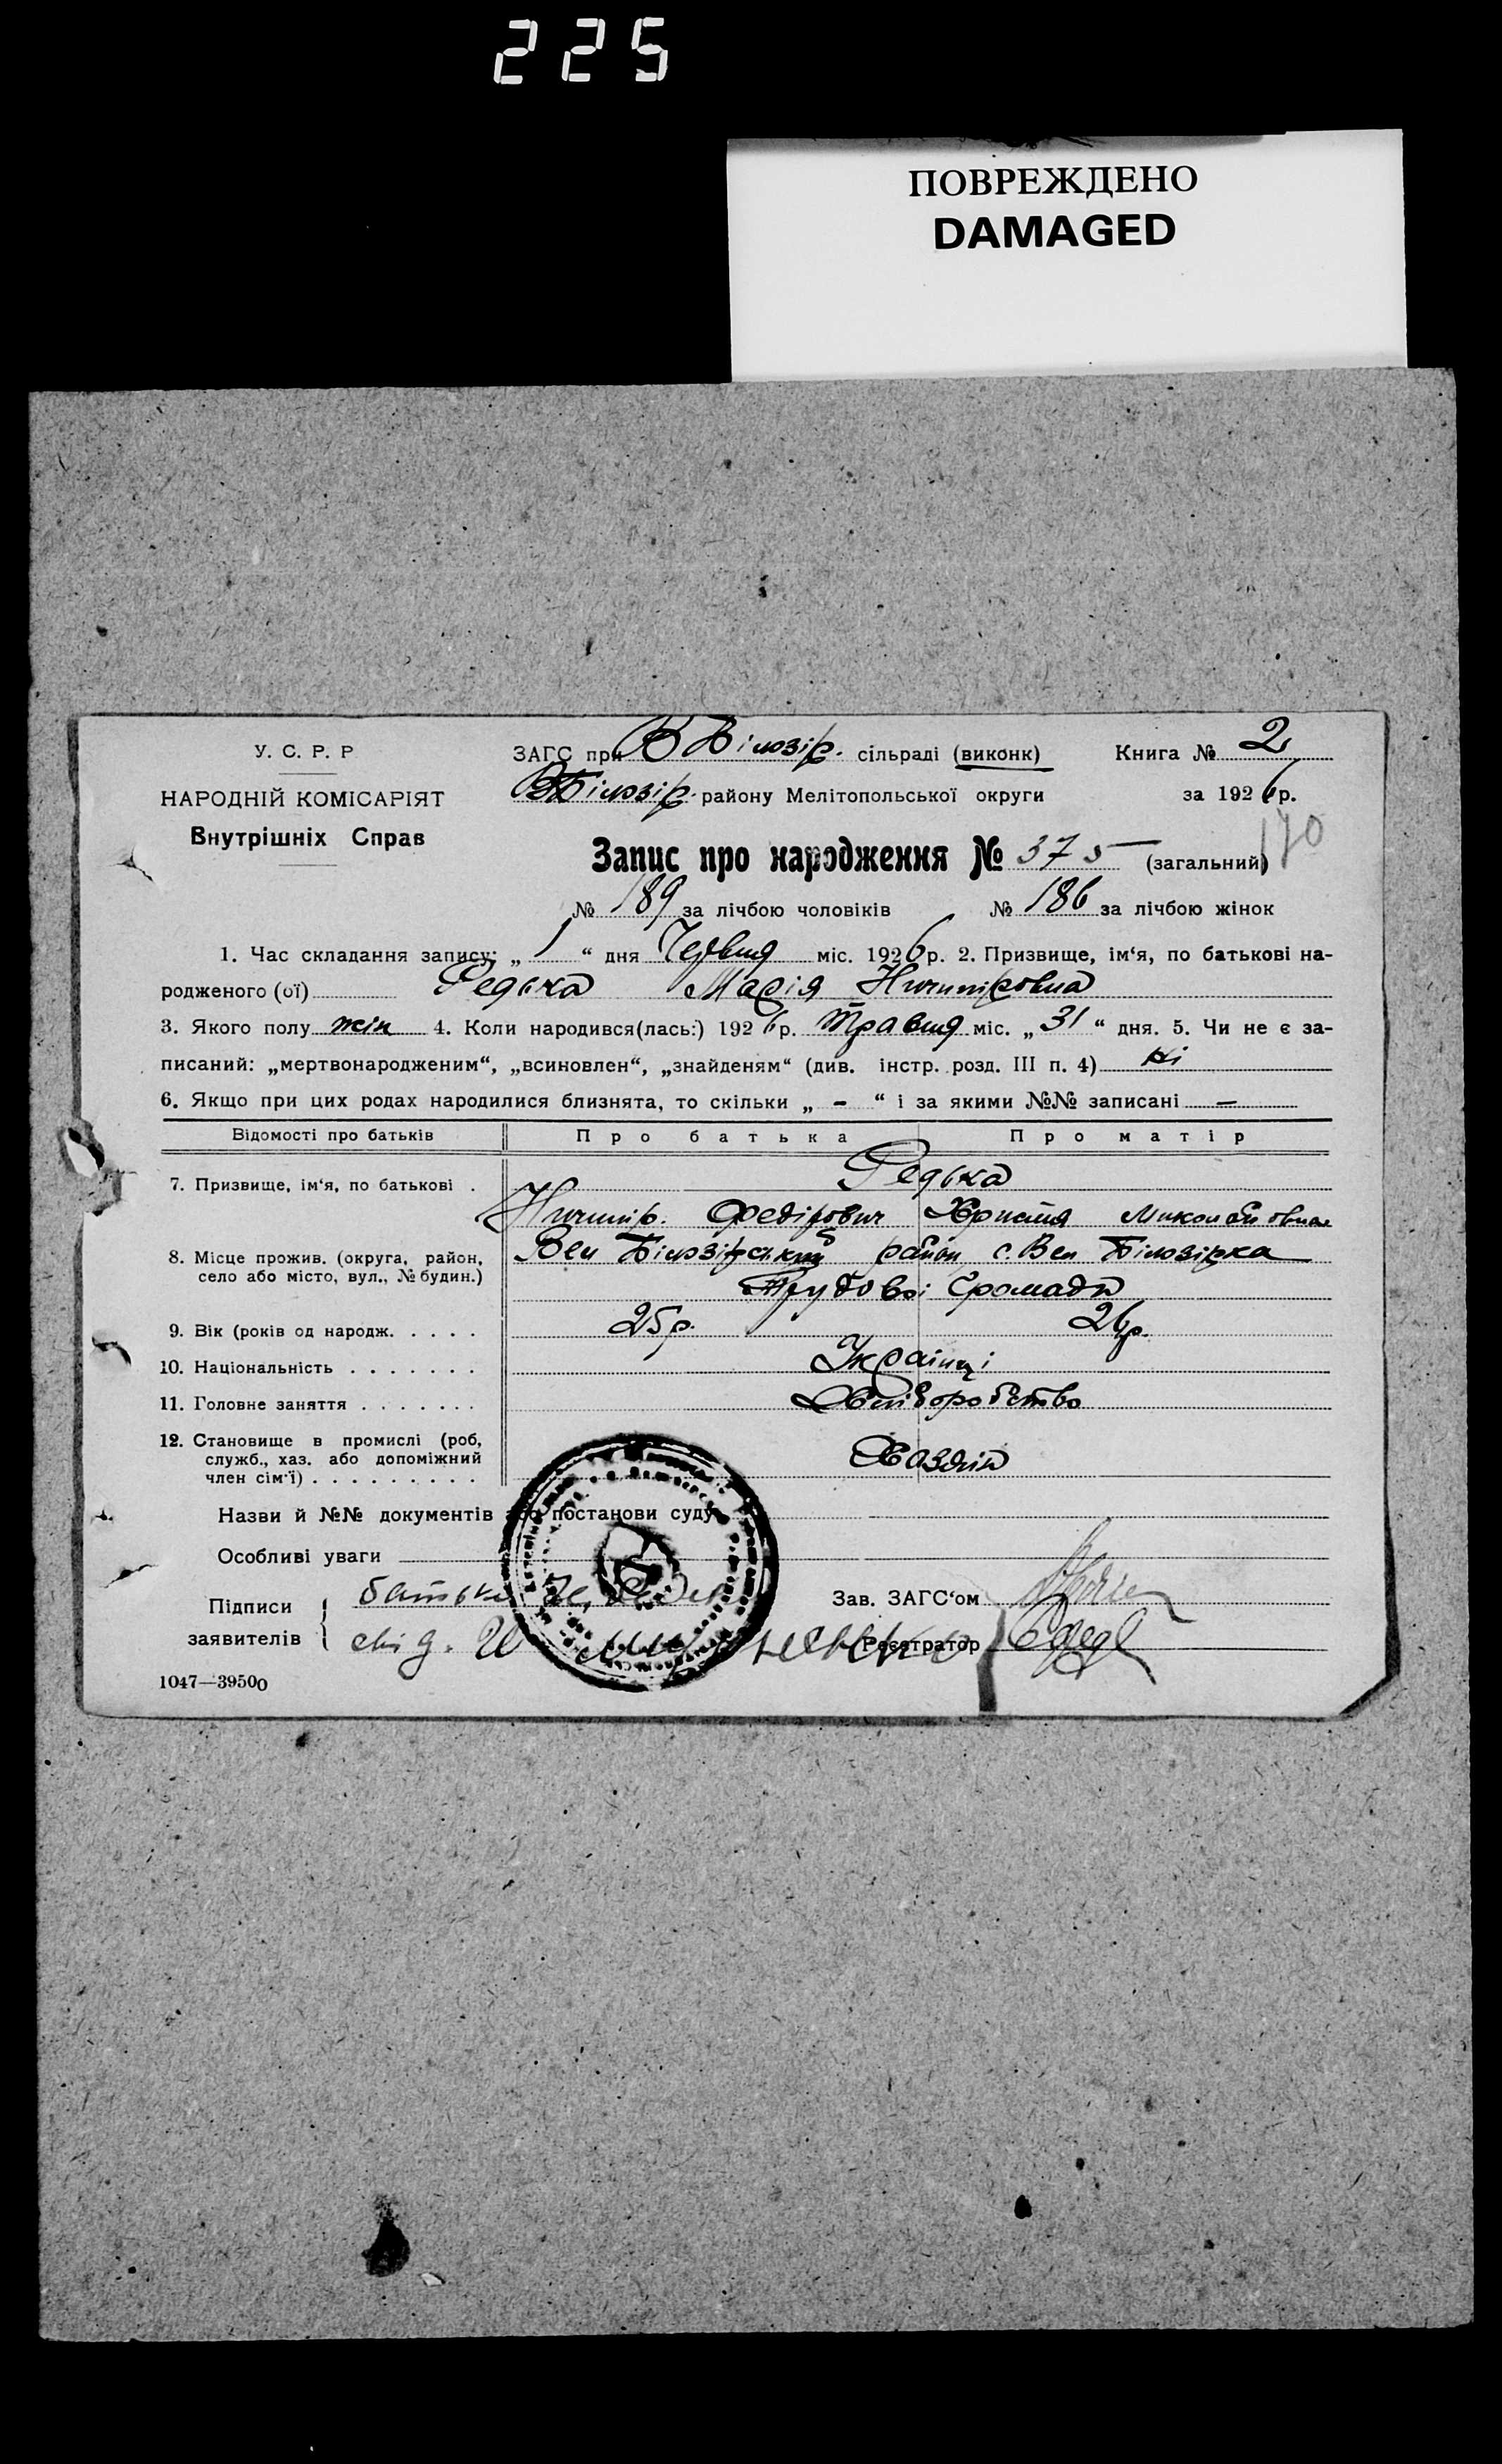 225
ПОВРЕЖДЕНО
DAMAGED
У. С. Р. Р
НАРОДНІЙ КОМІСАРІЯТ
Внутрішніх Справ
ЗАГС при В Білозір. сільраді (виконк) Книга № 2
В Білозір. району Мелітопольської округи за 1926 р.
Запис про народження № 375 (загальний)
170
№ 189 за лічбою чоловіків № 186 за лічбою жінок
1. Час складання запису: „ 1 “ дня Червня міс. 1926 р. 2. Призвище, ім‘я, по батькові на-
родженого (ої) Редька Марія Ничипировна
3. Якого полу жін 4. Коли народився(лась:) 1926 р. Травня міс. „ 31 “ дня. 5. Чи не є за-
писаний: „мертвонародженим“, „всиновлен“, „знайденям“ (див. інстр. розд. III п. 4) Ні
6. Якщо при цих родах народилися близнята, то скільки „ - “ і за якими №№ записані —
Відомості про батьків Про батька Про матір
7. Призвище, ім‘я, по батькові . Редька
Ничипір. Федірович Христя Миколаївна
8. Місце прожив. (округа, район, село або місто, вул., № будин.) Вел Білозірський район, с. Вел Білозірка
Трудової Громади
9. Вік (років од народж. . . . . 25 р. 26 р.
10. Національність . . . . . . . Українці
11. Головне заняття . . . . . . . Хліборобство
12. Становище в промислі (роб,
служб., хаз. або допоміжний
член сім‘ї) . . . . . . . . . Хаздїн
Назви й №№ документів або постанови суду
Особливі уваги
Підписи заявителів батько
свід.
Зав. ЗАГС‘ом
Реєстратор
1047—39500